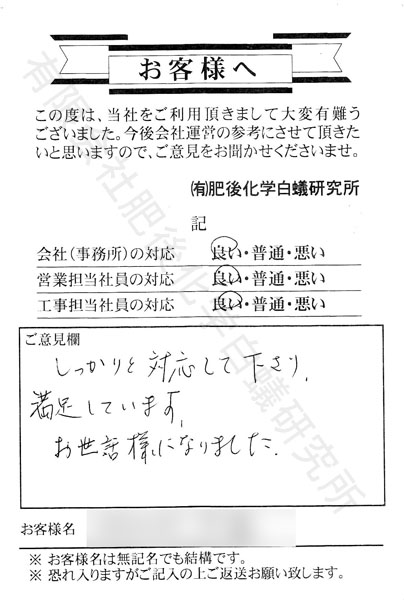 お客様へ
この度は、当社をご利用頂きまして大変有難う
ございました。今後会社運営の参考にさせて頂きた
いと思いますので、ご意見をお聞かせくださいませ。
㈲肥後化学白蟻研究所
記
会社(事務所)の対応 良い・普通・悪い
営業担当社員の対応 良い・普通・悪い
工事担当社員の対応 良い・普通・悪い
ご意見欄
しっかりと対応して下さり、
満足しています。
お世話様になりました。
お客様名
※ お客様名は無記名でも結構です。
※ 恐れ入りますがご記入の上ご返送お願い致します。
有限会社肥後化学白蟻研究所